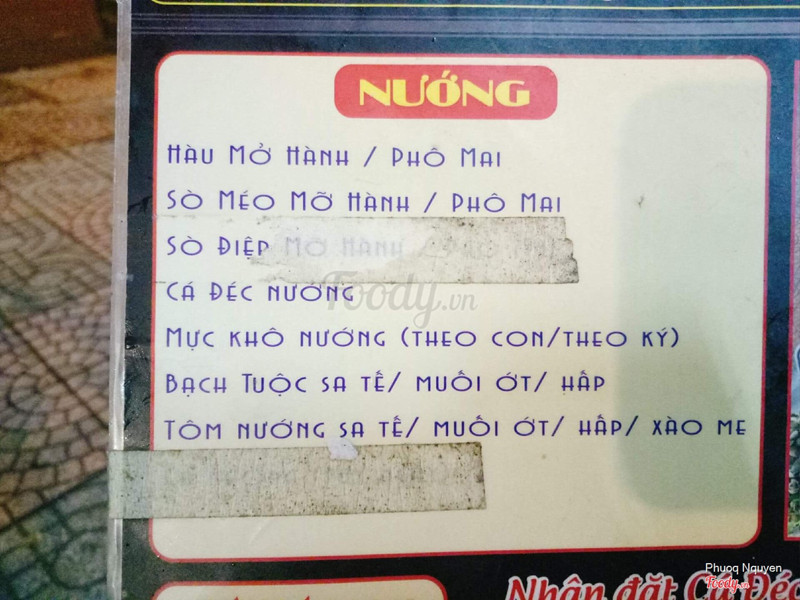 NƯỚNG
HÀU MỞ HÀNH / PHÔ MAI
SÒ MÉO MỠ HÀNH / PHÔ MAI
SÒ ĐIỆP MỠ HÀNH /
CÁ ĐÉC NƯỚNG
Foody.vn
MỰC KHÔ NƯỚNG (THEO CON/THEO KÝ)
BẠCH TUỘC SA TẾ/ MUỐI ỚT/ HẤP
TÔM NƯỚNG SA TẾ/ MUỐI ỚT/ HẤP/ XÀO ME
Phuoq Nguyen
Foody.vn
Nhận đặt Cá Đéc